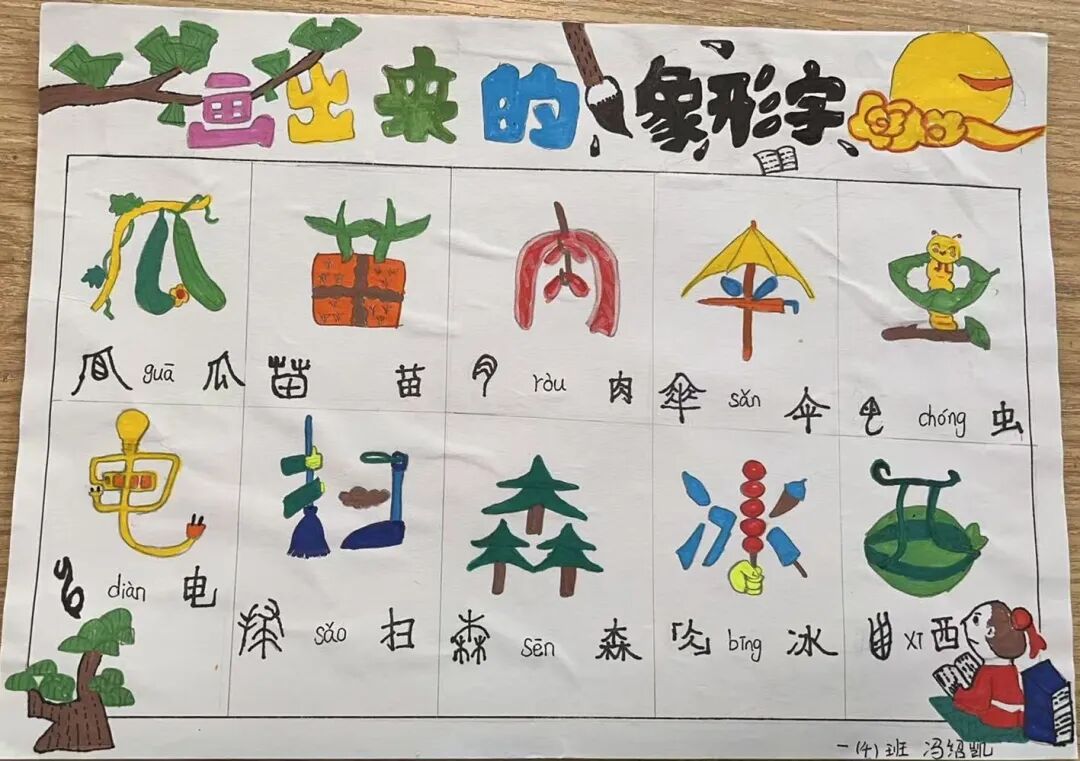 画出来的象形字
瓜 guā 瓜
苗 苗
肉 ròu 肉
伞 sǎn 伞
虫 chóng 虫
电 diàn 电
扫 sǎo 扫
森 sēn 森
冰 bīng 冰
西 xī 西
一(4)班 冯绍凯